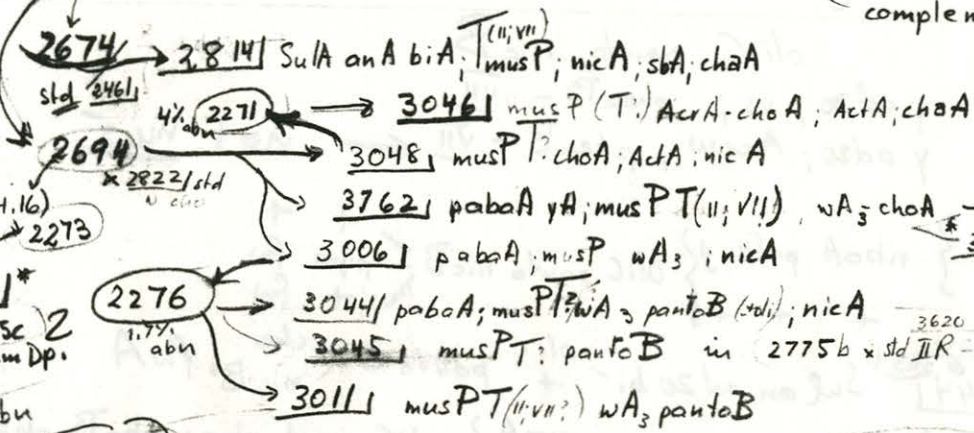 complem
2674 → 2814 SulA anA biA; T(II;VII) musP; nicA; sbA; chaA
std 2461
4% abn 2271 → 3046 musP (T.) AcrA-choA; ActA; chaA
2694 → 3048 musP T? choA; ActA; nicA
x 2822/std
2273
3762 pabaA yA; musP T(II; VII) wA3 choA
3006 pabaA; musP wA3; nicA
2276 → 3044 pabaA; musP T? wA3 pantoB; nicA
1.7% abn
3045 musP T? pantoB in 2775b x std IIR
3620
sc 2
m Dp.
3011 musP T(II;VII?) wA3 pantoB